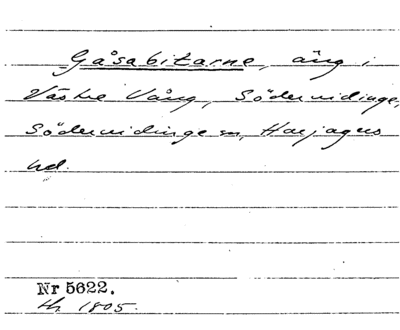 Gåsabitarne, äng i
Västre Vång, Södervidinge,
Södervidinge sn, Harjagers
hd.
Nr 5622.
th. 1805.